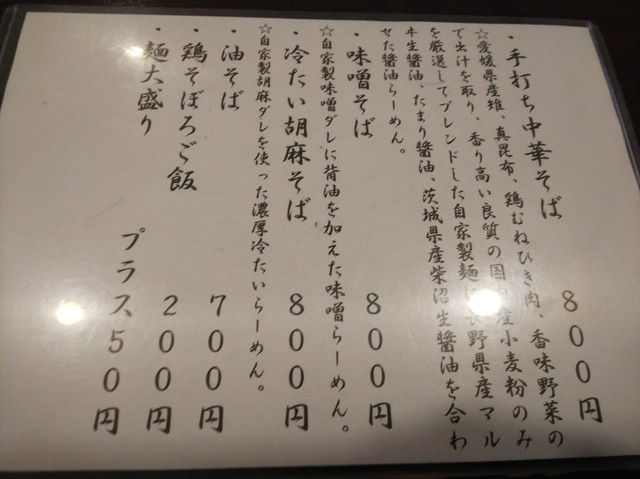 ・手打ち中華そば　８００円
☆愛媛県産雉、真昆布、鶏むねひき肉、香味野菜の
で出汁を取り、香り高い良質の国産小麦粉のみ
を厳選してブレンドした自家製麺に長野県産マル
キ生醬油、たまり醬油、茨城県産柴沼生醬油を合わ
せた醬油らーめん。
・味噌そば　８００円
☆自家製味噌ダレに背油を加えた味噌らーめん。
・冷たい胡麻そば　８００円
☆自家製胡麻ダレを使った濃厚冷たいらーめん。
・油そば　７００円
・鶏そぼろご飯　２００円
・麺大盛り　プラス５０円